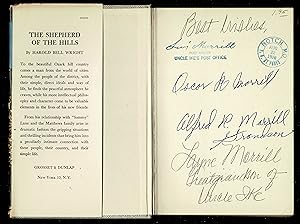 THE SHEPHERD
OF THE HILLS
By HAROLD BELL WRIGHT
To the beautiful Ozark hill country
comes a man from the world of cities.
Among the people of the district, with
their simple, direct ideals and way of
life, he finds the peaceful atmosphere he
craves, while his more intellectual philos-
ophy and character come to be valuable
elements in the lives of his new friends.
From his relationship with "Sammy"
Lane and the Matthews family arise in
dramatic fashion the gripping situations
and thrilling incident that bring him into
a peculiarly intimate connection with
these people, their country, and their
simple life.
GROSSET & DUNLAP
New York 10, N.Y.
Best Wishes,
Morrill
UNCLE IKE'S POST OFFICE
NOTCH, MO.
Oscar Morrill
Alfred R Morrill
Grandson
Layne Morrill
Great grandson of
Uncle Ike